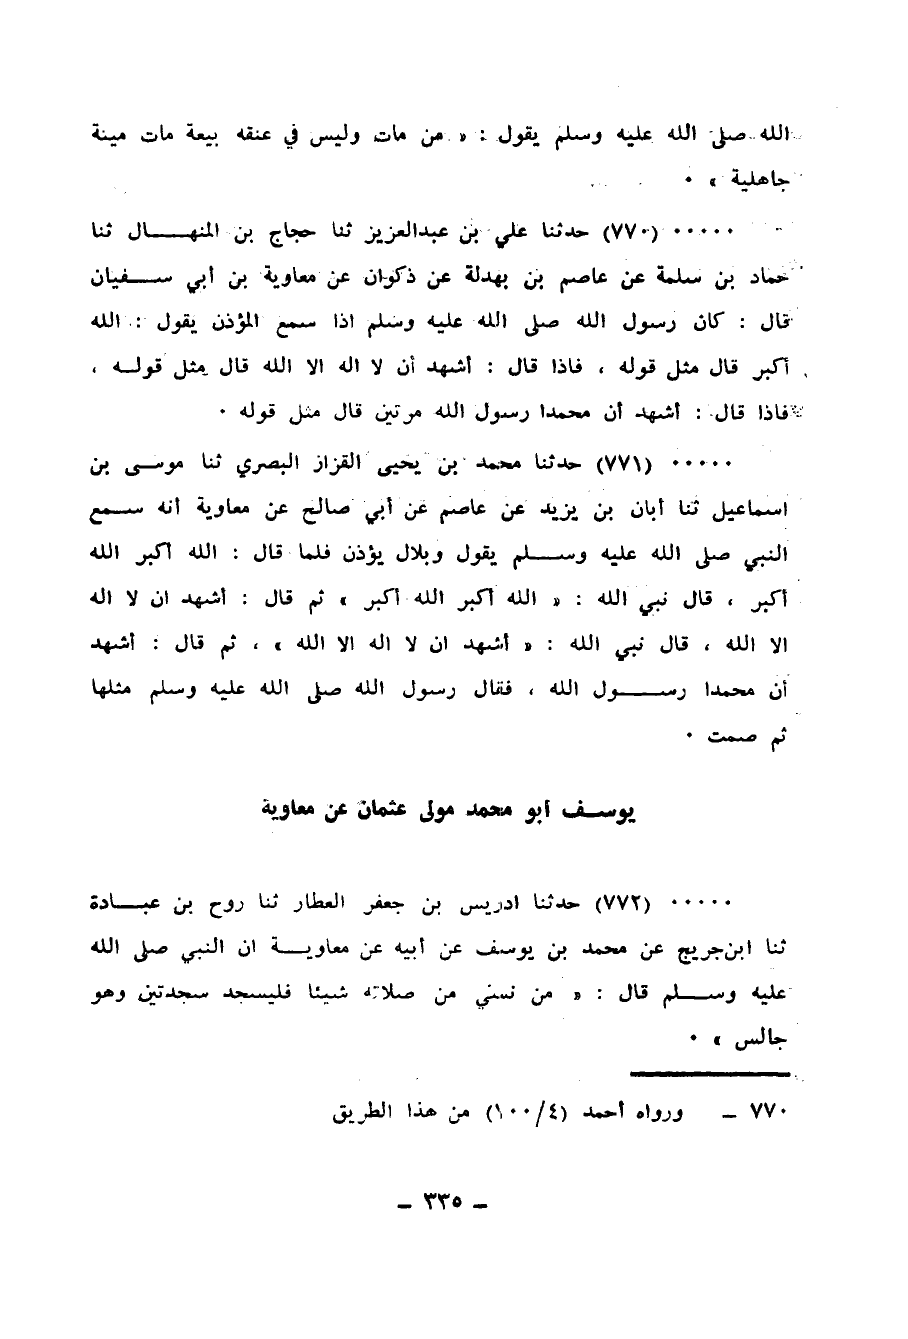 الله صلى الله عليه وسلم يقول : « من مات وليس في عنقه بيعة مات ميتة
جاهلية » ٠
٠٠٠٠٠ (٧٧٠) حدثنا علي بن عبدالعزيز ثنا حجاج بن المنهــــال ثنا
حماد بن سلمة عن عاصم بن بهدلة عن ذكوان عن معاوية بن أبي ســـفيان
قال : كان رسول الله صلى الله عليه وسلم اذا سمع المؤذن يقول : الله
أكبر قال مثل قوله ، فاذا قال : أشهد أن لا اله الا الله قال مثل قولــه ،
فاذا قال : أشهد أن محمدا رسول الله مرتين قال مثل قوله ٠
٠٠٠٠٠ (٧٧١) حدثنا محمد بن يحيى القزاز البصري ثنا موسـى بن
اسماعيل ثنا أبان بن يزيد عن عاصم عن أبي صالح عن معاوية أنه ســمع
النبي صلى الله عليه وســـلم يقول وبلال يؤذن فلما قال : الله أكبر الله
أكبر ، قال نبي الله : « الله أكبر الله أكبر » ثم قال : أشهد ان لا اله
الا الله ، قال نبي الله : « أشهد ان لا اله الا الله » ، ثم قال : أشهد
أن محمدا رســـــول الله ، فقال رسول الله صلى الله عليه وسلم مثلها
ثم صمت ٠
يوســف أبو محمد مولى عثمان عن معاوية
٠٠٠٠٠ (٧٧٢) حدثنا ادريس بن جعفر العطار ثنا روح بن عبـــادة
ثنا ابن جريج عن محمد بن يوسف عن أبيه عن معاويـــة ان النبي صلى الله
عليه وســـلم قال : « من نسي من صلاته شيئا فليسجد سجدتين وهو
جالس » ٠
٧٧٠ ـ ورواه أحمد (٤/١٠٠) من هذا الطريق
ـ ٣٣٥ ـ